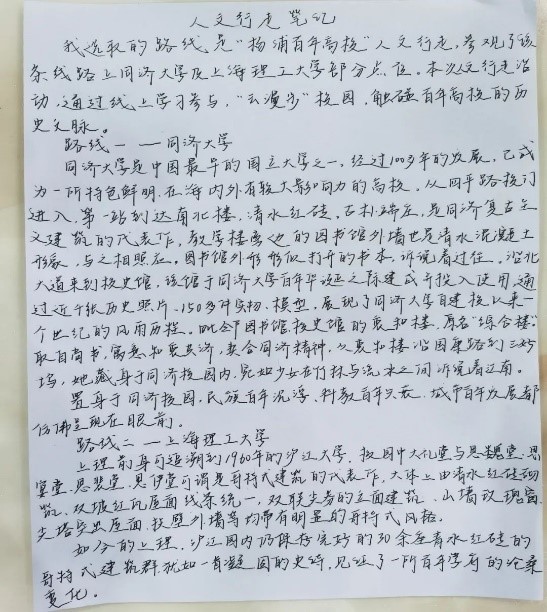 人文行走笔记
我选取的路线是“杨浦百年高校”人文行走，参观了该
条线路上同济大学及上海理工大学部分点位。本次人文行走活
动，通过线上学习参与，“云漫步”校园，触碰百年高校的历
史文脉。
路线一——同济大学
同济大学是中国最早的国立大学之一，经过100多年的发展，已成
为一所特色鲜明、在海内外有较大影响力的高校。从四平路校门
进入，第一站到达南北楼，清水红砖，古朴端庄，是同济复古主
义建筑的代表作，教学楼旁边的图书馆外墙也是清水混凝土
形象，与之相照应。图书馆外形形似打开的书本，诉说着过往。沿北
大道来到校史馆，该馆于同济大学百年华诞之际建成并投入使用，通
过近千张历史照片、150多件实物、模型，展现了同济大学自建校以来一
个世纪的风雨历程。毗邻图书馆、校史馆的衷和楼，原名“综合楼”，
取自尚书，寓意和衷共济，契合同济精神，从衷和楼沿园康路到三好
坞，她藏身于同济校园内，宛如少女在竹林与流水之间诉说着江南。
置身于同济校园，民族百年沉浮，科教百年兴衰，城市百年发展都
仿佛呈现在眼前。
路线二——上海理工大学
上理前身可追溯到1906年的沪江大学，校园中大礼堂与思魏堂、思
晏堂、思裴堂、思伊堂可谓是哥特式建筑的代表作，大体上由清水红砖砌
筑，双坡红瓦屋面线条统一，双联尖券的立面建筑、山墙玫瑰窗、
尖塔突出屋面，扶壁外墙等均带有明显的哥特式风格。
如今的上理，沪江园内仍保存完好的30余座清水红砖的
哥特式建筑群犹如一首凝固的史诗，见证了一所百年学府的沧桑
变化。